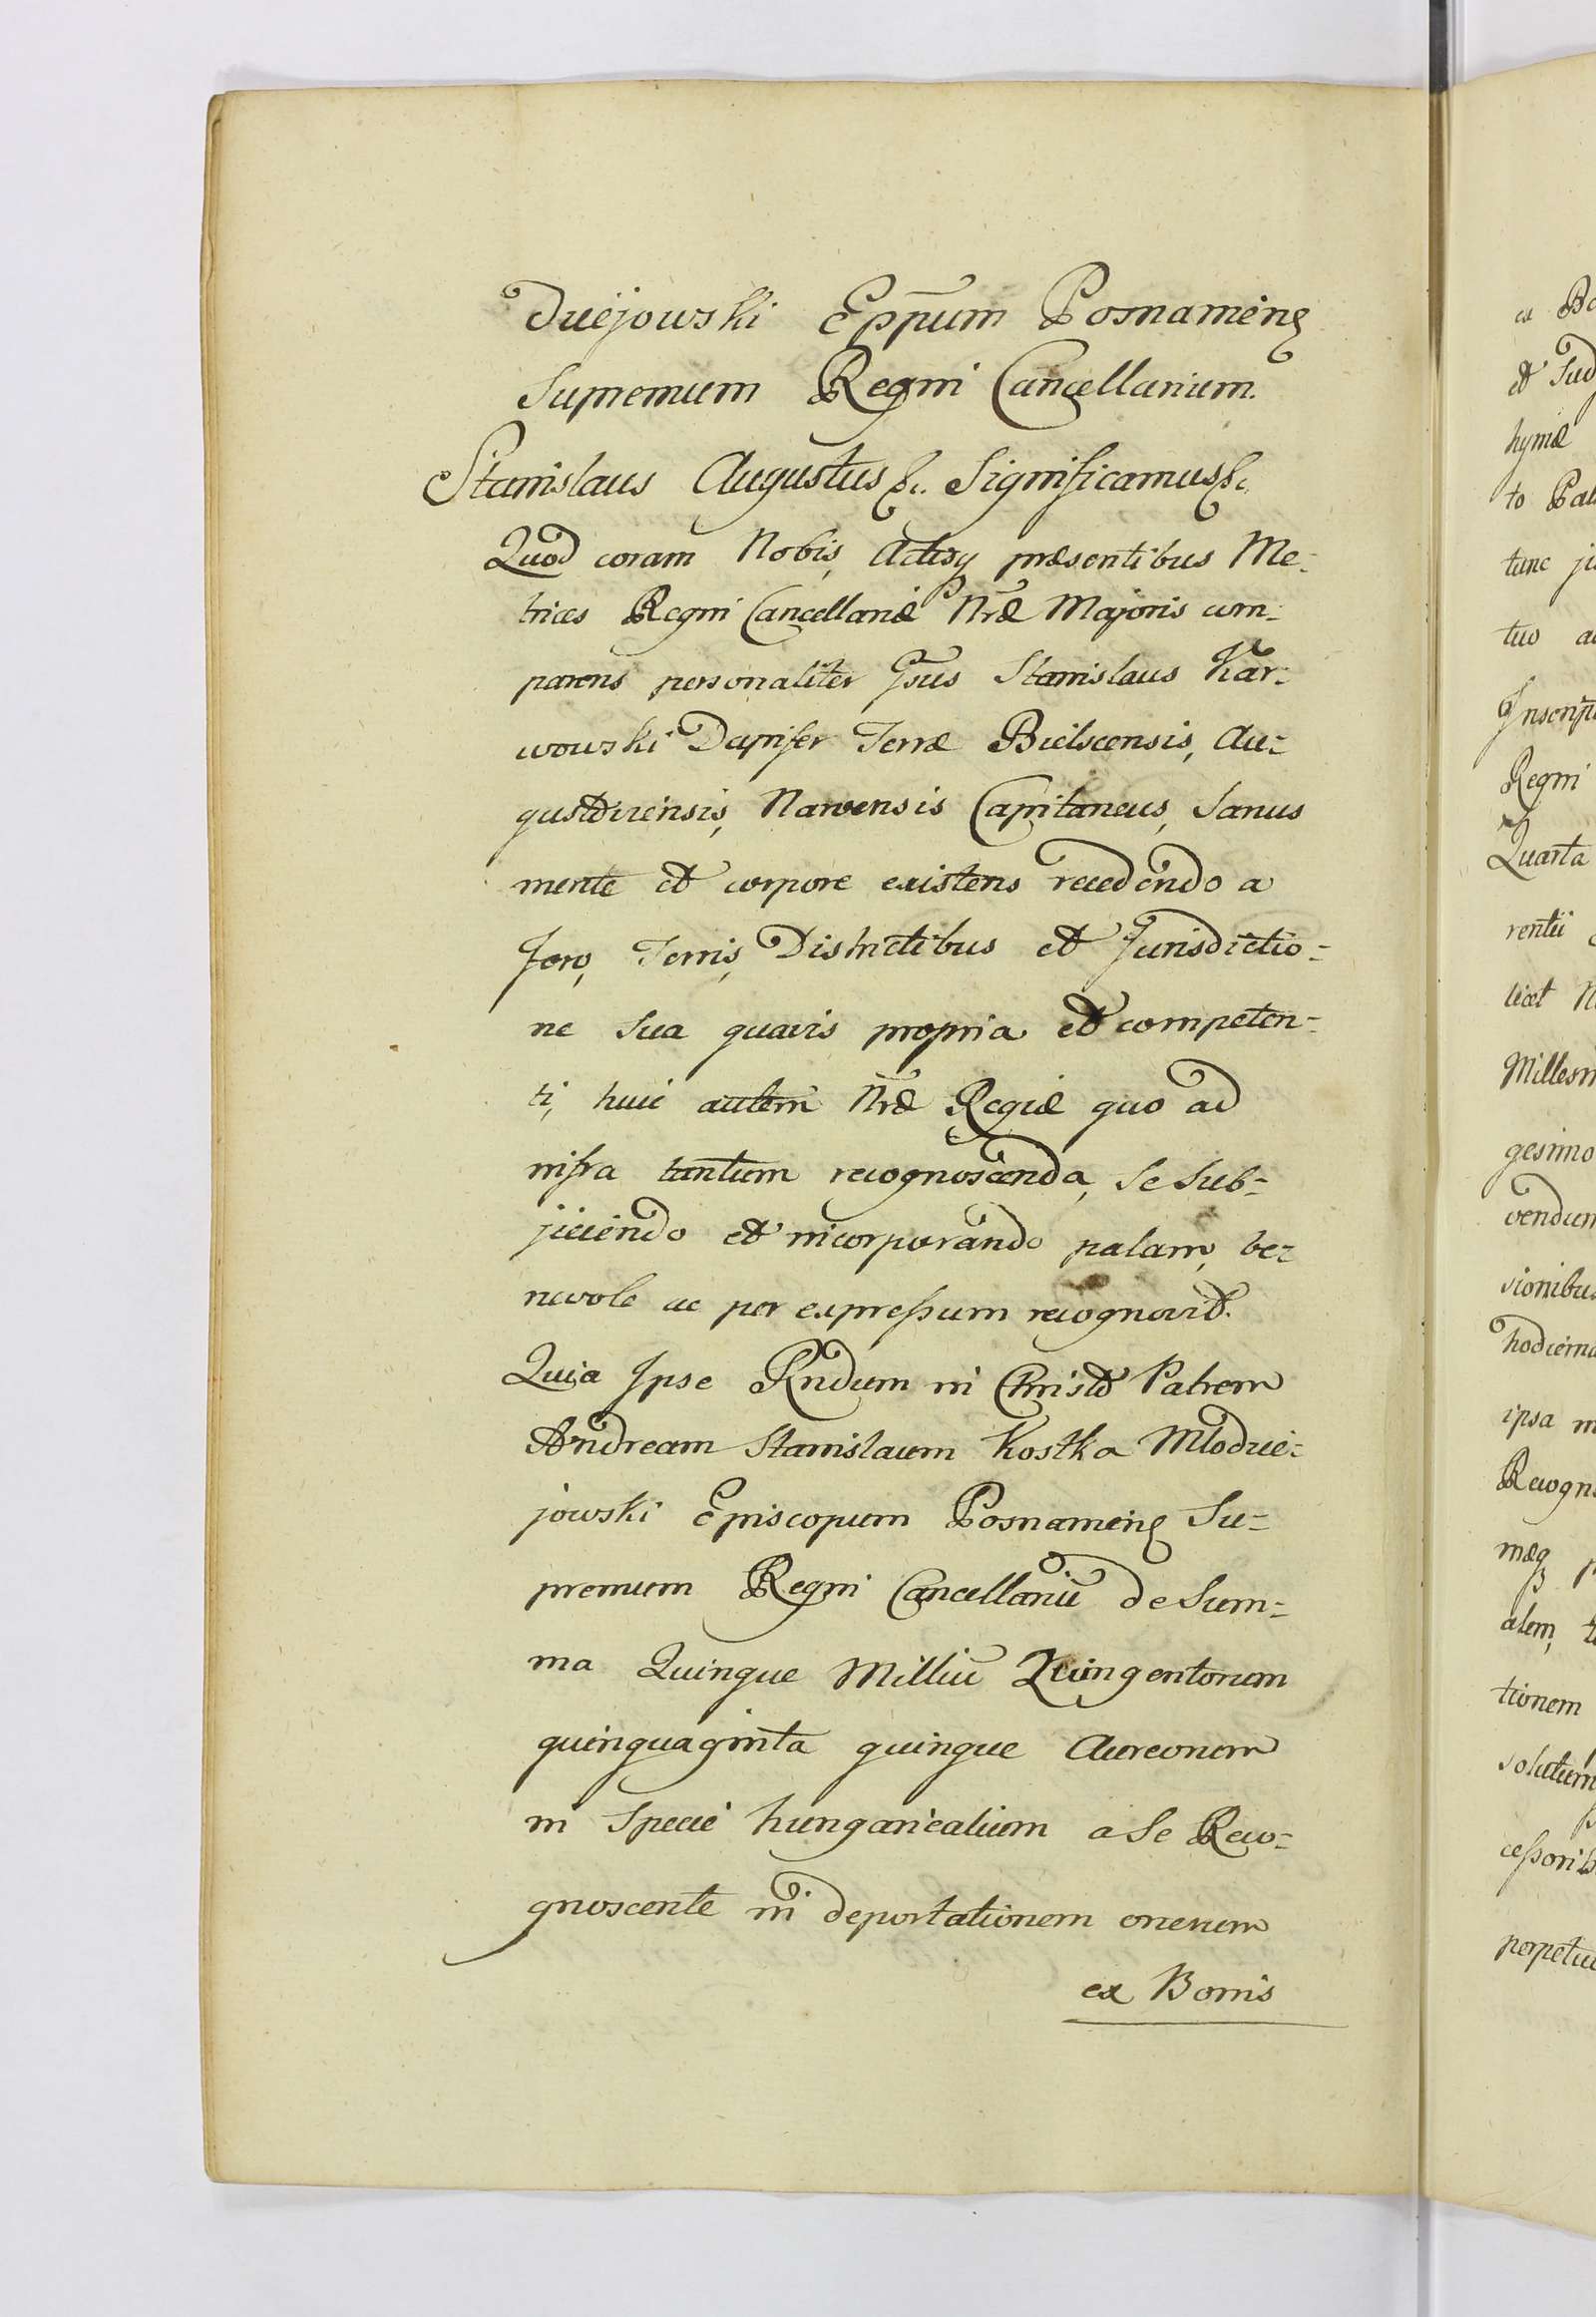 dziejowski Eppum Posnaniens
Supremum Regni Cancellarium.
Stanislaus Augustus &c. Significamus &c.
Quod coram Nobis, Actisq presentibus Me-
trices Regni Cancellariæ Nræ Majoris com-
parens personaliter Gsus Stanislaus Kar-
wowski Dapifer Terræ Bielscensis, Au-
gustoviensis, Narvensis Capitaneus, Sanus
mente et corpore existens recedendo a
Foro, Terris, Districtibus et Jurisdictio-
ne Sua quavis propria et competen-
ti, huic autem Nræ Regiæ quo ad
infra tantum recognoscenda, Se Sub-
jiciendo et incorporando palam, be-
nevole ac per expressum recognovit.
Quia Ipse Rndum in Christo Patrem
Andream Stanislaum Kostka Mlodzie-
jowski Episcopum Posnaniens Su-
premum Regni Cancellariū de Sum-
ma Quinque Milliū Quingentorum
quinquaginta quinque Aureorum
in Specie hungaricalium a Se Reco-
gnoscente in deportationem onerum
ex Bonis
et Jud
hyniæ
to Pal
tunc
tuo
Inscrip
Regni
Quarta
rentii
licet
Millesi
gesimo
vendum
sionibus
hodierna
ipsa
Recogn
mæq
alem,
tionem
solutum
cessorib
perpetu